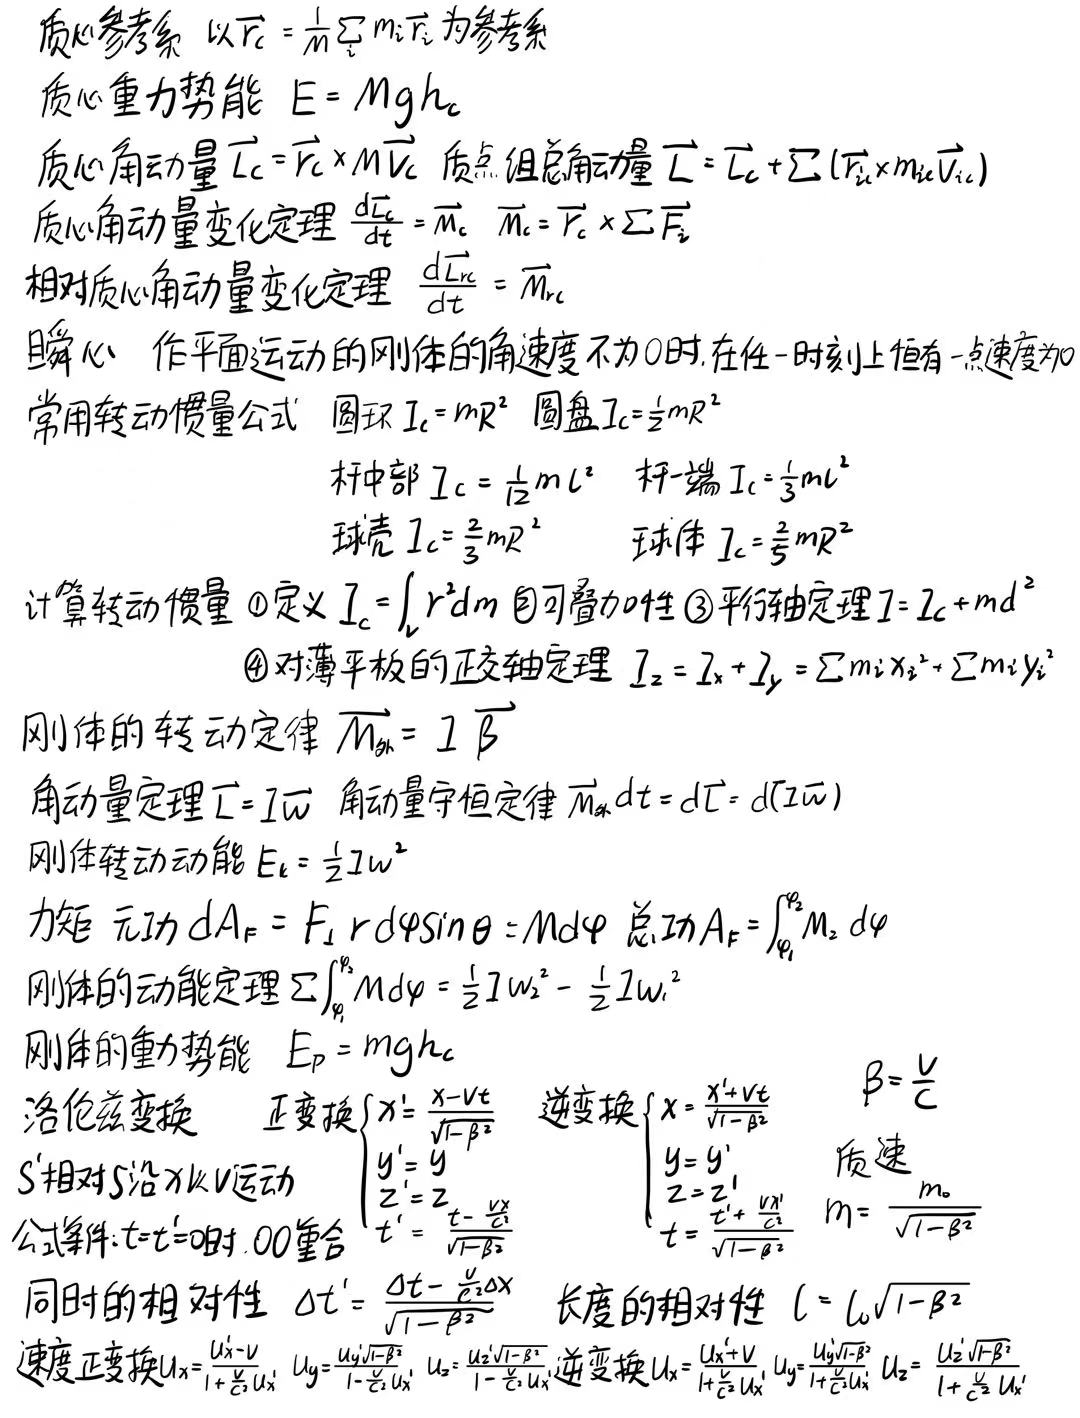 质心参考系 以 $\vec{r_c} = \frac{1}{M}\sum_i m_i\vec{r_i}$ 为参考系
质心重力势能 $E = Mgh_c$
质心角动量 $\vec{L_c} = \vec{r_c} × M\vec{V_c}$ 质点组总角动量 $\vec{L} = \vec{L_c} + \sum(\vec{r_{ic}} × m_{ic}\vec{V_{ic}})$
质心角动量变化定理 $\frac{d\vec{L_c}}{dt} = \vec{M_c}$ $\vec{M_c} = \vec{r_c} × \sum\vec{F_i}$
相对质心角动量变化定理 $\frac{d\vec{L_{rc}}}{dt} = \vec{M_{rc}}$
瞬心 作平面运动的刚体的角速度不为0时,在任一时刻上恒有一点速度为0
常用转动惯量公式 圆环 $I_c = mR^2$ 圆盘 $I_c = \frac{1}{2}mR^2$
杆中部 $I_c = \frac{1}{12}ml^2$ 杆一端 $I_c = \frac{1}{3}ml^2$
球壳 $I_c = \frac{2}{3}mR^2$ 球体 $I_c = \frac{2}{5}mR^2$
计算转动惯量 ①定义 $I_c = \int_V r^2dm$ ②可叠加性 ③平行轴定理 $I = I_c + md^2$
④对薄平板的正交轴定理 $I_z = I_x + I_y = \sum m_ix_i^2 + \sum m_iy_i^2$
刚体的转动定律 $\vec{M_外} = I\vec{β}$
角动量定理 $\vec{L} = I\vec{w}$ 角动量守恒定律 $\vec{M_外}dt = d\vec{L} = d(I\vec{w})$
刚体转动动能 $E_k = \frac{1}{2}Iw^2$
力矩 元功 $dA_F = F_⊥ rdφsinθ = Mdφ$ 总功 $A_F = \int_{φ_1}^{φ_2} M_z dφ$
刚体的动能定理 $\sum\int_{φ_1}^{φ_2} Mdφ = \frac{1}{2}Iw_2^2 - \frac{1}{2}Iw_1^2$
刚体的重力势能 $E_p = mgh_c$
$β = \frac{v}{c}$
洛伦兹变换 正变换 $x' = \frac{x-vt}{\sqrt{1-β^2}}$ 逆变换 $x = \frac{x'+vt}{\sqrt{1-β^2}}$
$y' = y$ $y = y'$ 质速
S'相对S沿x以v运动 $z' = z$ $z = z'$ $m = \frac{m_0}{\sqrt{1-β^2}}$
公式条件:t=t'=0时.OO重合 $t' = \frac{t-\frac{vx}{c^2}}{\sqrt{1-β^2}}$ $t = \frac{t'+\frac{vx'}{c^2}}{\sqrt{1-β^2}}$
同时的相对性 $Δt' = \frac{Δt-\frac{v}{c^2}Δx}{\sqrt{1-β^2}}$ 长度的相对性 $l = l_0\sqrt{1-β^2}$
速度正变换 $u_x = \frac{u_x'-v}{1+\frac{v}{c^2}u_x'}$ $u_y = \frac{u_y'\sqrt{1-β^2}}{1-\frac{v}{c^2}u_x'}$ $u_z = \frac{u_z'\sqrt{1-β^2}}{1-\frac{v}{c^2}u_x'}$ 逆变换 $u_x = \frac{u_x'+v}{1+\frac{v}{c^2}u_x'}$ $u_y = \frac{u_y'\sqrt{1-β^2}}{1+\frac{v}{c^2}u_x'}$ $u_z = \frac{u_z'\sqrt{1-β^2}}{1+\frac{v}{c^2}u_x'}$